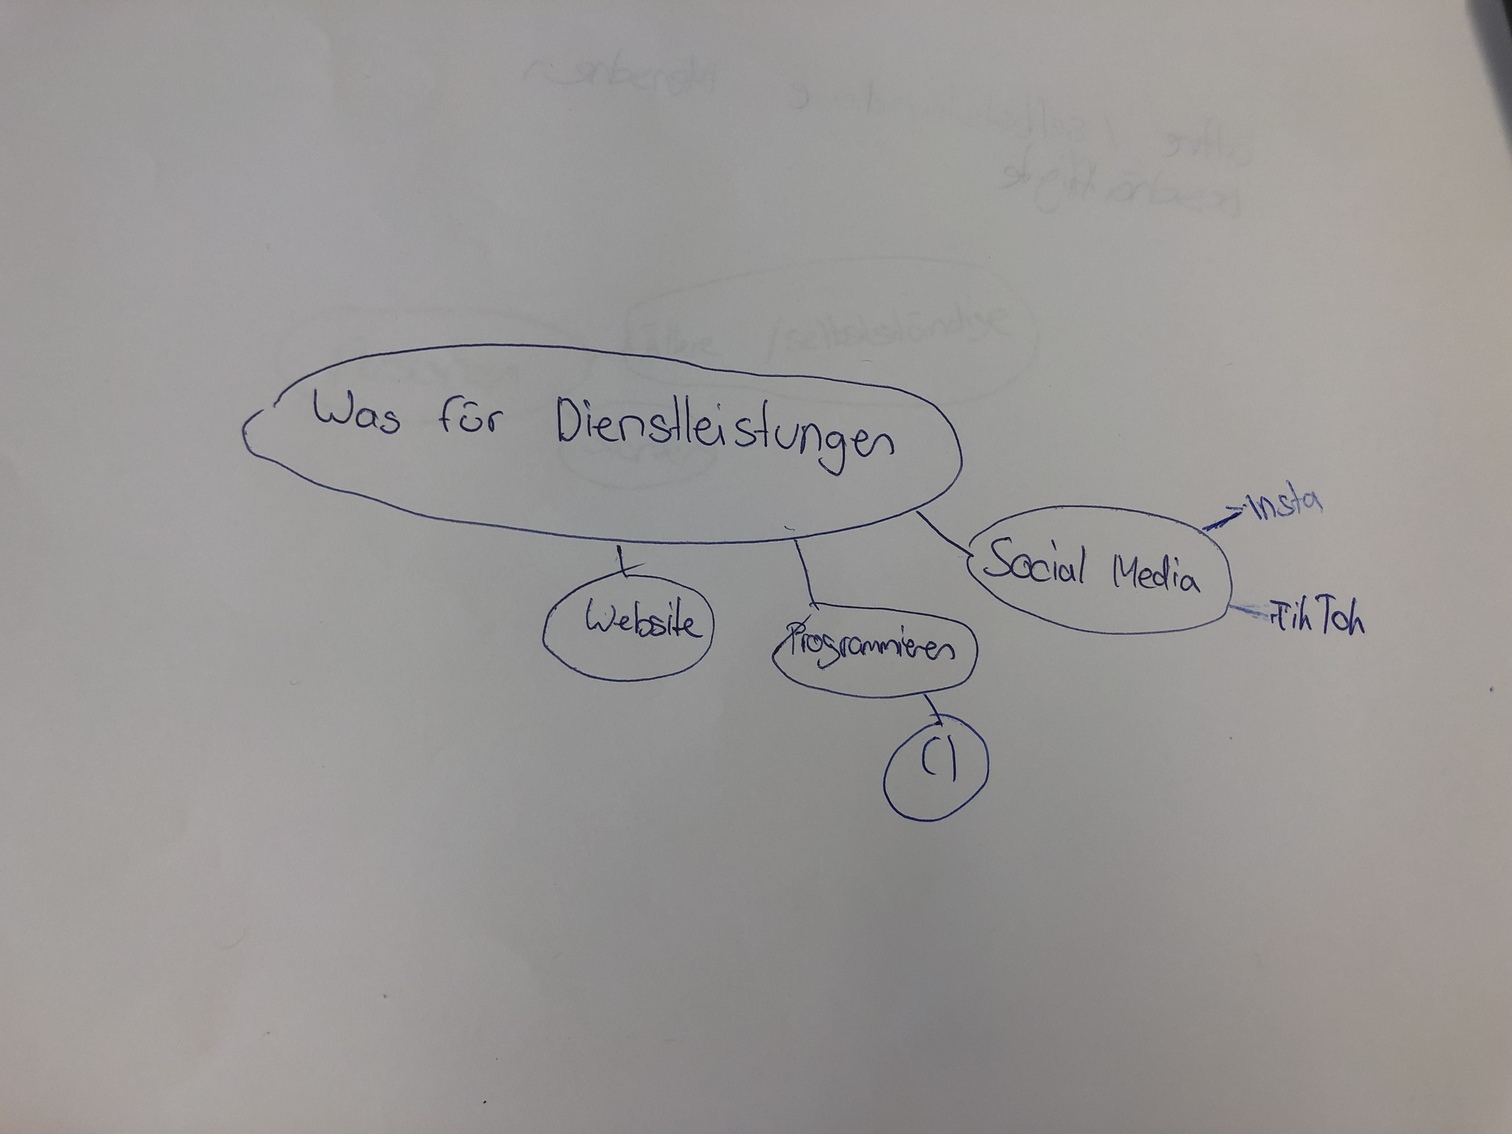 Was für Dienstleistungen
Website
Programmieren
Social Media
Insta
TikTok